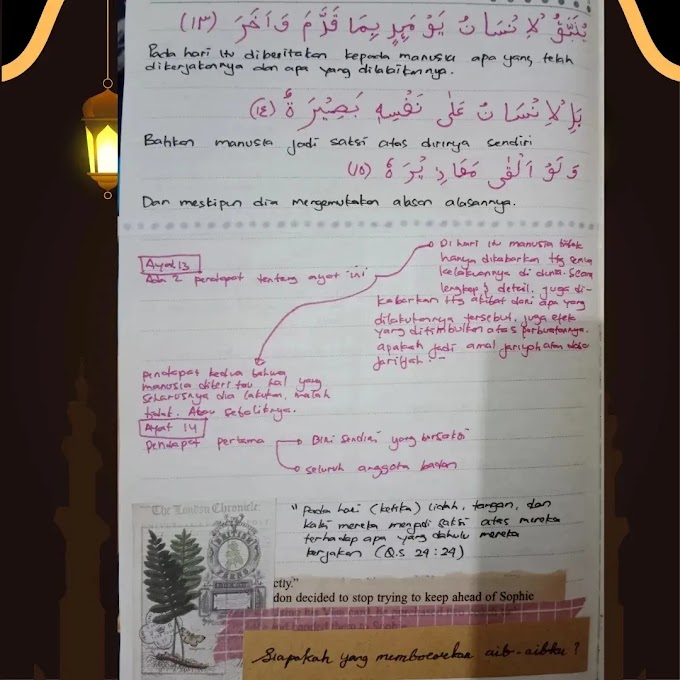 يُنَبَّؤُ الْاِنْسَانُ يَوْمَىِٕذٍۢ بِمَا قَدَّمَ وَاَخَّرَ (١٣)
Pada hari itu diberitakan kepada manusia apa yang telah
dikerjakannya dan apa yang dilalaikannya.
بَلِ الْاِنْسَانُ عَلٰى نَفْسِهٖ بَصِيْرَةٌ (١٤)
Bahkan manusia jadi saksi atas dirinya sendiri
وَلَوْ اَلْقٰى مَعَاذِيْرَهٗ (١٥)
Dan meskipun dia mengemukakan alasan alasannya.
Ayat 13
Ada 2 pendapat tentang ayat "ini"
Di hari itu manusia tidak
hanya dikabarkan ttg semua
kelakuannya di dunia. Secara
lengkap & detail. juga di-
kabarkan ttg akibat dari apa yang
dilakukannya tersebut. juga efek
yang ditimbulkan atas perbuatannya.
apakah jadi amal jariyah atau
jariyah.
pendapat kedua bahwa
manusia diberi tau, hal yang
seharusnya dia lakukan, malah
tidak. Atau sebaliknya.
Ayat 14
pendapat pertama
Diri sendiri yang bersaksi
seluruh anggota badan
The London Chronicle
"pada hari (ketika) lidah, tangan, dan
kaki mereka menjadi saksi atas mereka
terhadap apa yang dahulu mereka
kerjakan (Q.S 24:24)
ctly."
don decided to stop trying to keep ahead of Sophie
Siapakah yang membocorkan aib-aibku?